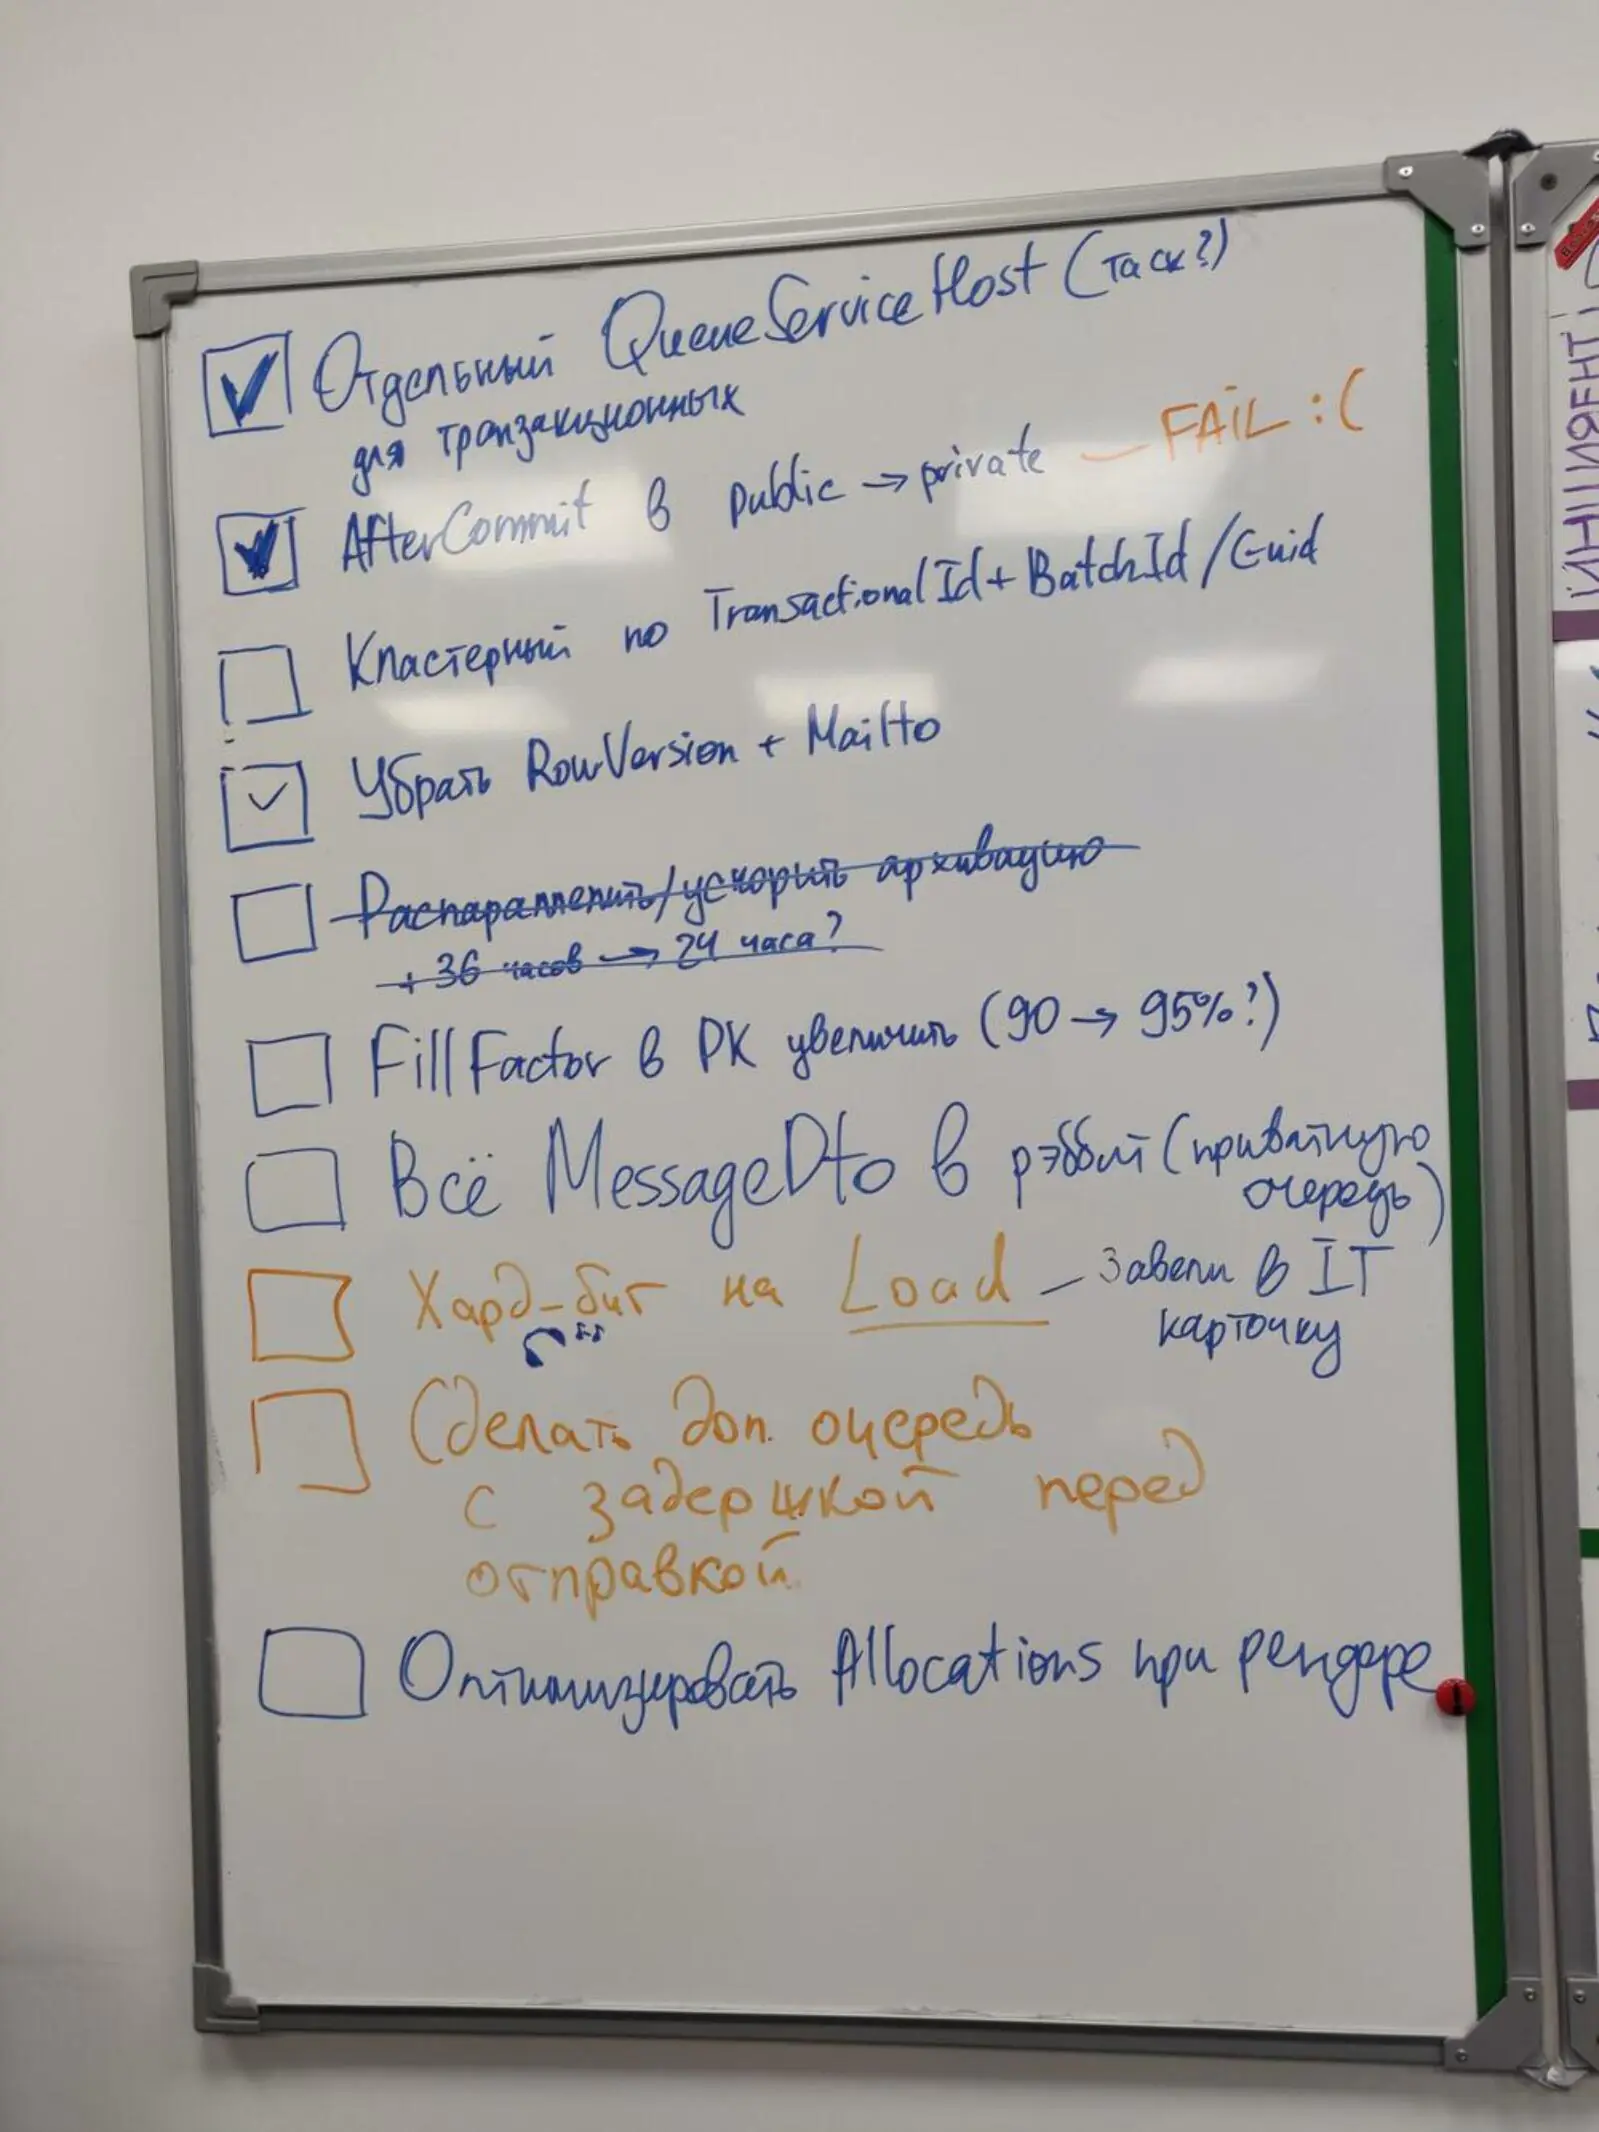 Отдельный QueueServiceHost (таск?)
для транзакционных
AfterCommit в public → private — FAIL :(
Кластерный по TransactionalId + BatchId / Guid
Убрать RowVersion + Mailto
Распараллелить/ускорить архивацию
+ 36 часов → 24 часа?
FillFactor в PK увеличить (90 → 95%?)
Всё MessageDto в рэббит (приватную
очередь)
Хард-бит на Load — Завели в IT
карточку
Сделать доп. очередь
с задержкой перед
отправкой
Оптимизировать Allocations при рендере